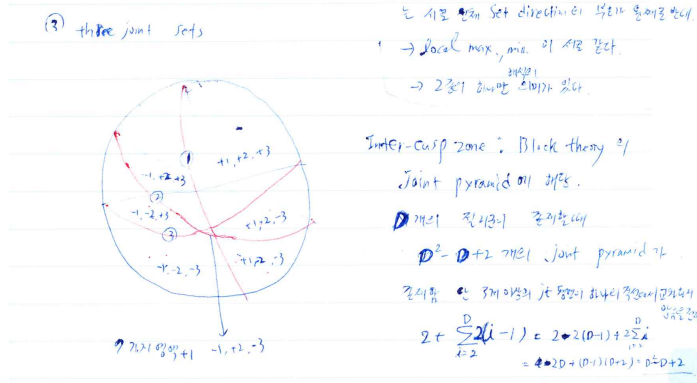 ③ three joint sets
+1, +2, +3
①
-1, +2 +3
②
-1, -2, +3
③
+1, 2, -3
-1, -2, -3
+1, 2, -3
7가지영역+1 -1, +2, -3
는 서로 set direction의 부호가
→ local max., min. 이 서로 같다.
해석의
→ 2중의 하나만 의미가 있다.
Inter-cusp zone : Block theory 의
Joint pyramid 에 해당.
D개의 절리군이 존재할때
D²-D+2 개의 joint pyramid 가
존재함 단 3개 이상의 jt 평면이 하나의 직선에서
2+ Σ 2(i-1) = 2 - 2(D-1) + 2 Σ i
D
i=2
= 4-2D+(D-1)(D+2) = D²-D+2